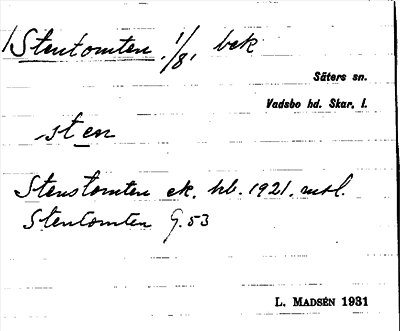 Stentomten. 1/8, bek
Säters sn.
Vadsbo hd. Skar. l.
sten
Stenstomten ek. hb. 1921. mtl.
Stentomten G. 53
L. MADSÉN 1931